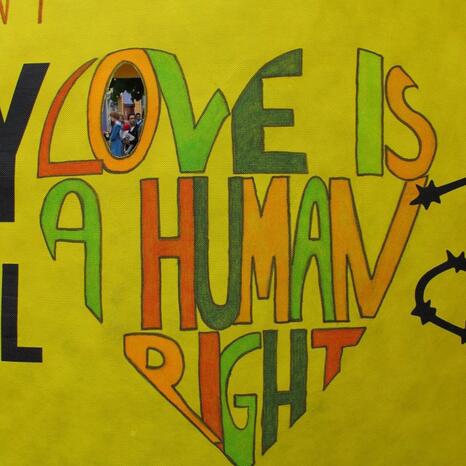 LOVE IS
A HUMAN
RIGHT